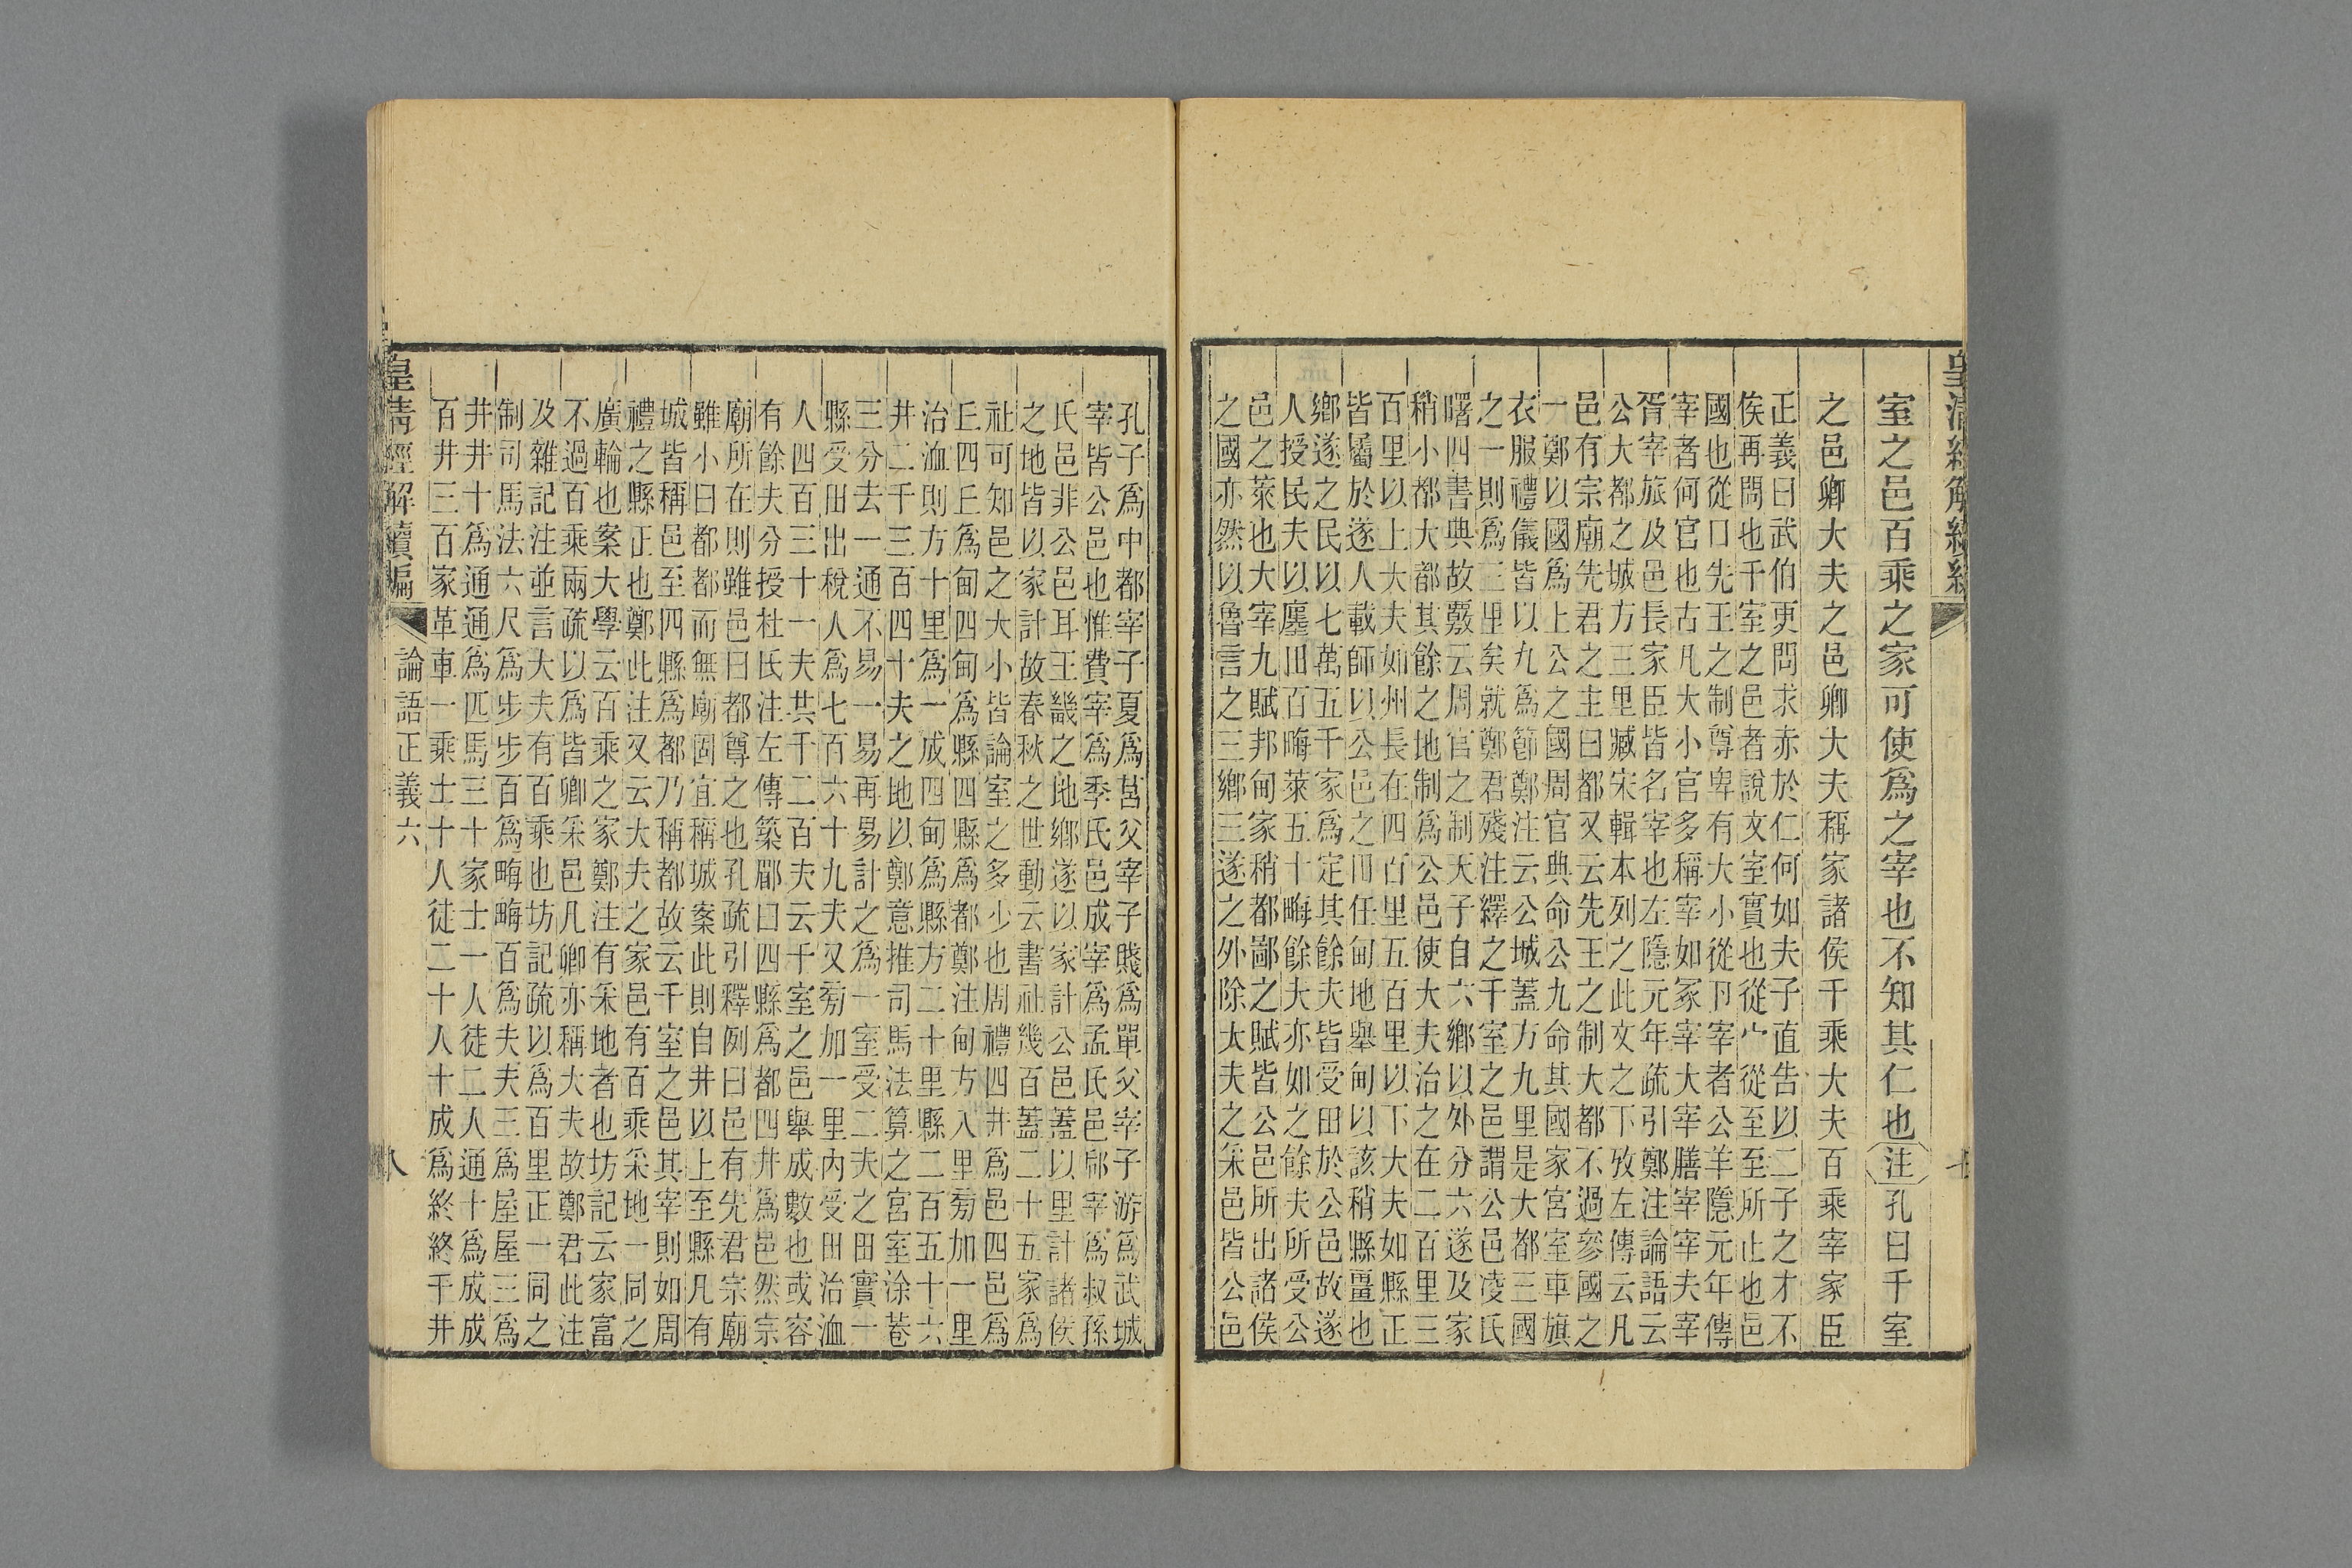 室之邑百乘之家可使爲之宰也不知其仁也注孔曰千室
之邑卿大夫之邑卿大夫稱家諸侯千乘大夫百乘宰家臣
正義曰武伯更問求赤於仁何如夫子直告以二子之才不
矦再問也千室之邑者說文室實也從宀從至至所止也邑
國也從囗先王之制尊卑有大小從卪宰者公羊隱元年傳
宰者何官也古凡大小官多稱宰如冢宰大宰膳宰宰夫宰
胥宰旅及邑長家臣皆名宰也左隱元年疏引鄭注論語云
公大都之城方三里臧宋輯本列之此文之下攷左傳云凡
邑有宗廟先君之主曰都又云先王之制大都不過參國之
一鄭以國爲上公之國周官典命公九命其國家宮室車旗
衣服禮儀皆以九爲節鄭注云公城蓋方九里是大都三國
之一則爲三里矣就鄭君殘注繹之千室之邑謂公邑凌氏
曙四書典故覈云周官之制天子自六鄉以外分六遂及家
稍小都大都其餘之地制爲公邑使大夫治之在二百里三
百里以上大夫如州長在四百里五百里以下大夫如縣正
皆屬於遂人載師以公邑之田任甸地舉甸以該稍縣畺也
鄉遂之民以七萬五千家爲定其餘夫皆受田於公邑故遂
人授民夫以廛田百畮萊五十畮餘夫亦如之餘夫所受公
邑之萊也大宰九賦邦甸家稍都鄙之賦皆公邑所出諸侯
之國亦然以魯言之三鄉三遂之外除大夫之采邑皆公邑
孔子爲中都宰子夏爲莒父宰子賤爲單父宰子游爲武城
宰皆公邑也惟費宰爲季氏邑成宰爲孟氏邑郈宰爲叔孫
氏邑非公邑耳王畿之地鄉遂以家計公邑蓋以里計諸侯
之地皆以家計故春秋之世動云書社幾百蓋二十五家爲
社可知邑之大小皆論室之多少也周禮四井爲邑四邑爲
丘四丘爲甸四甸爲縣四縣爲都鄭注甸方八里旁加一里
治洫則方十里爲一成四甸爲縣方二十里縣二百五十六
井二千三百四十夫之地以鄭意推司馬法算之宮室涂巷
三分去一通不易一易再易計之爲一室受二夫之田實一
縣受田出稅人爲七百六十九夫又旁加一里內受田治洫
人四百三十一夫其千二百夫云千室之邑舉成數也或容
有餘夫分授杜氏注左傳築郿曰四縣爲都四井爲邑然宗
廟所在則雖邑曰都尊之也孔疏引釋例曰邑有先君宗廟
雖小曰都都而無廟固宜稱城案此則自井以上至縣凡有
城皆稱邑至四縣爲都乃稱都故云千室之邑其宰則如周
禮之縣正也鄭此注又云大夫之家邑有百乘采地一同之
廣輪也案大學云百乘之家鄭注有采地者也坊記云家富
不過百乘兩疏以爲皆卿采邑凡卿亦稱大夫故鄭君此注
及雜記注並言大夫有百乘也坊記疏以爲百里正一同之
制司馬法六尺爲步步百爲畮畮百爲夫夫三爲屋屋三爲
井井十爲通通爲匹馬三十家士一人徒二人通十爲成成
百井三百家革車一乘士十人徒二十人十成爲終終千井
皇清經解續編 論語正義六 八